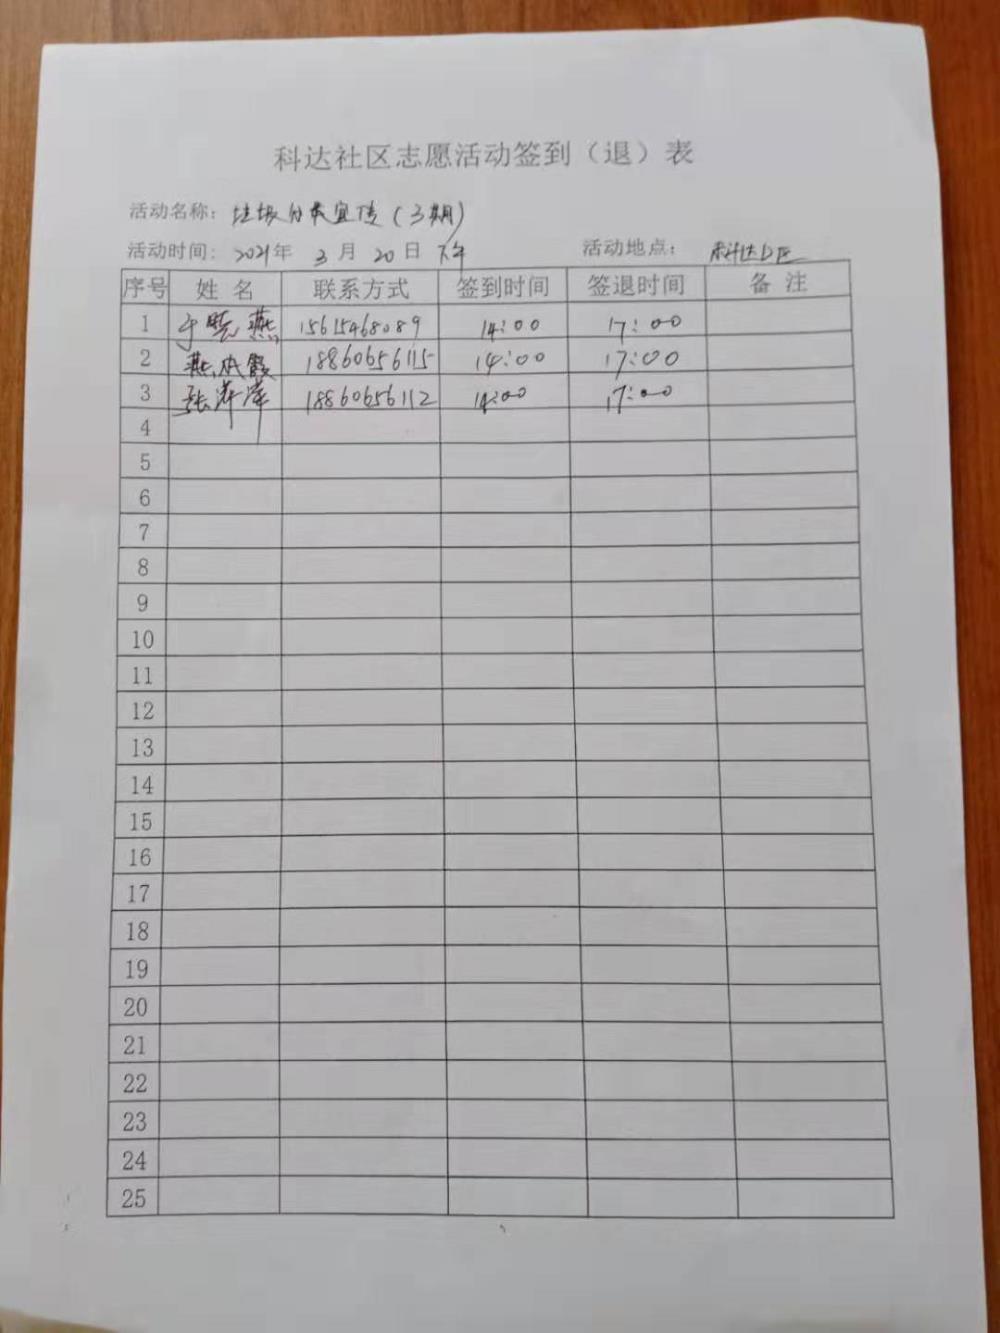 科达社区志愿活动签到（退）表
活动名称：垃圾分类宣传（3期）
活动时间：2021年 3月 20日 下午 活动地点：科达D区
序号 姓名 联系方式 签到时间 签退时间 备注
1 于晓燕 15615468089 14:00 17:00
2 燕 霞 18860656115 14:00 17:00
3 张 萍 18860656112 14:00 17:00
4
5
6
7
8
9
10
11
12
13
14
15
16
17
18
19
20
21
22
23
24
25